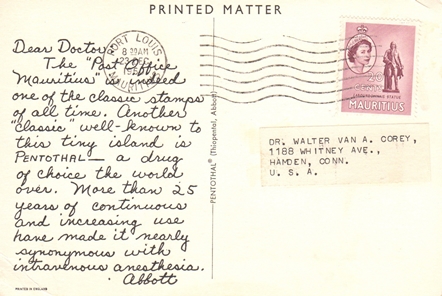 PRINTED MATTER
Dear Doctor
The "Post Office
Mauritius" is indeed
one of the classic stamps
of all time. Another
"classic" well-known to
this tiny island is
PENTOTHAL — a drug
of choice the world
over. More than 25
years of continuous
and increasing use
have made it nearly
synonymous with
intravenous anesthesia.
Abbott
PRINTED IN ENGLAND
PENTOTHAL® (Thiopental, Abbott)
PORT LOUIS
8 30AM
MAURITIUS
20
CENTS
MAURITIUS
DR. WALTER VAN A. COREY,
1188 WHITNEY AVE.,
HAMDEN, CONN.
U. S. A.